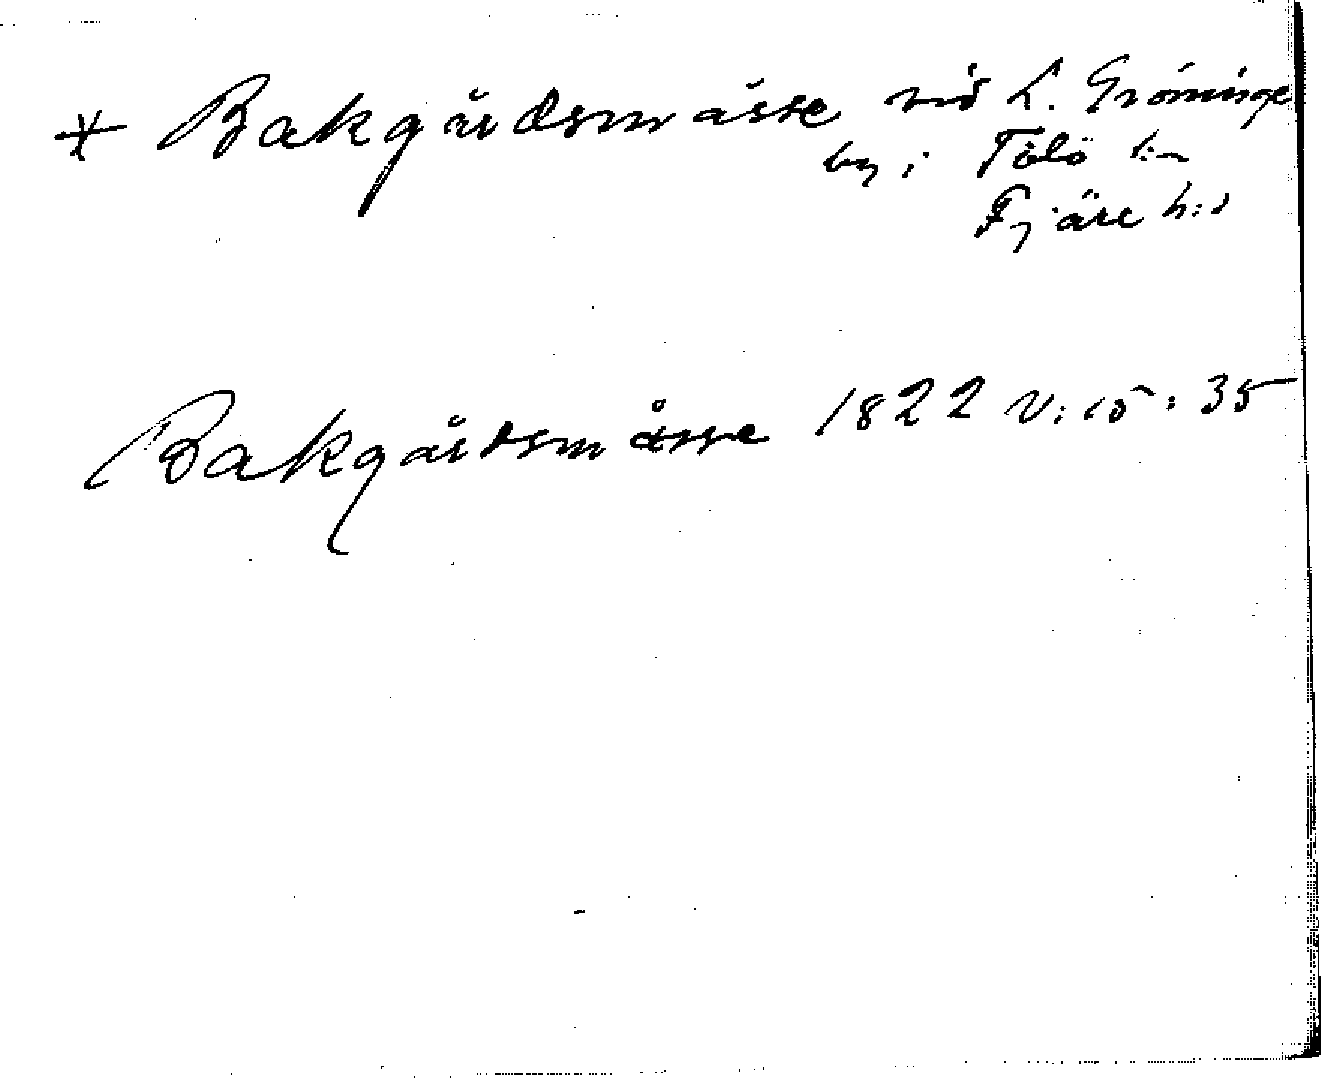 + Bakgårdsmåsse vid L. Gröninge
by i Tölö s:n
Fjäre h:d
Bakgårdsmåsse 1822 V: 15: 35